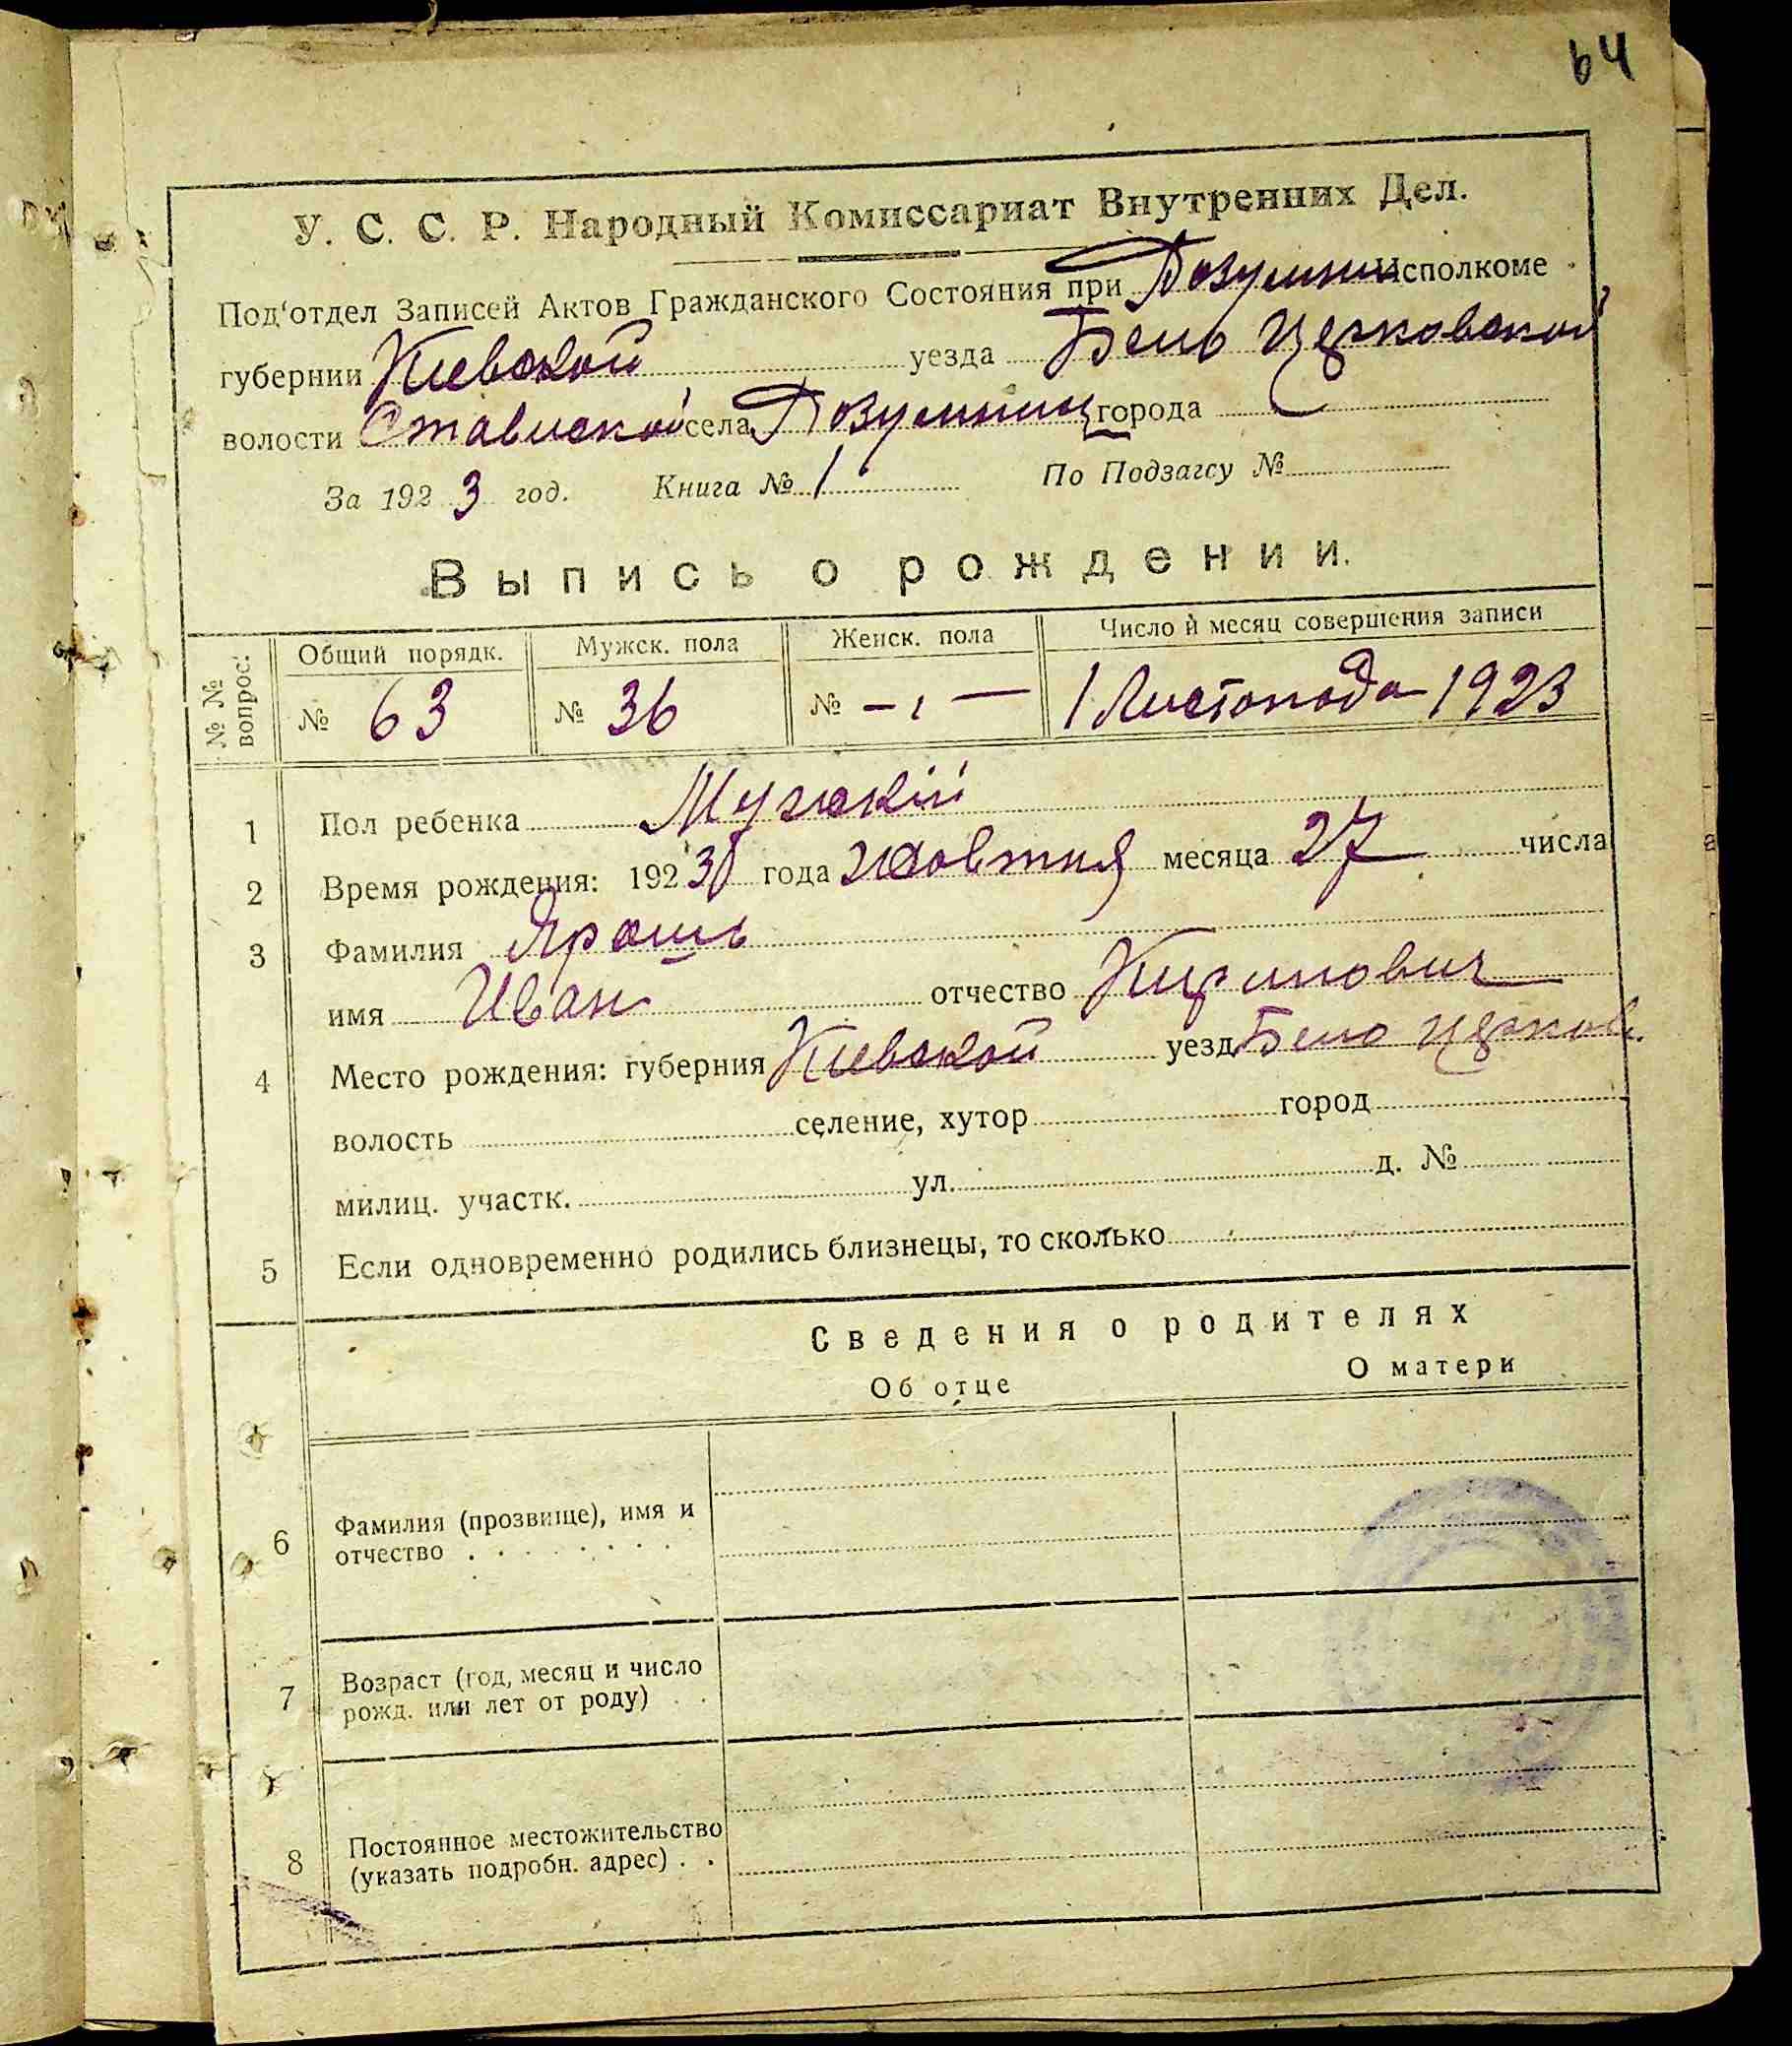 64
У. С. С. Р. Народный Комиссариат Внутренних Дел.
Под'отдел Записей Актов Гражданского Состояния при Исполкоме
губернии Киевской уезда Бело Церковской
волости Ставиской села города
За 1923 год. Книга № 1 По Подзагсу №
Выпись о рождении.
№ № вопрос. Общий порядк. Мужск. пола Женск. пола Число и месяц совершения записи
№ 63 № 36 № - 1 Листопада 1923
1 Пол ребенка Мужскій
2 Время рождения: 1923 года жовтня месяца 27 числа
3 Фамилия Ярошь
имя Иван отчество
4 Место рождения: губерния Киевской уезд Бело Церков.
волость селение, хутор город
милиц. участк. ул. д. №
5 Если одновременно родились близнецы, то сколько
Сведения о родителях
Об отце О матери
6 Фамилия (прозвище), имя и
отчество . . . . . . . .
7 Возраст (год, месяц и число
рожд. или лет от роду) . .
8 Постоянное местожительство
(указать подробн. адрес) . .